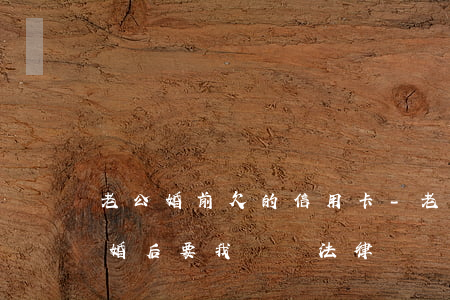 老公婚前欠的信用卡-老
婚后要我 法律